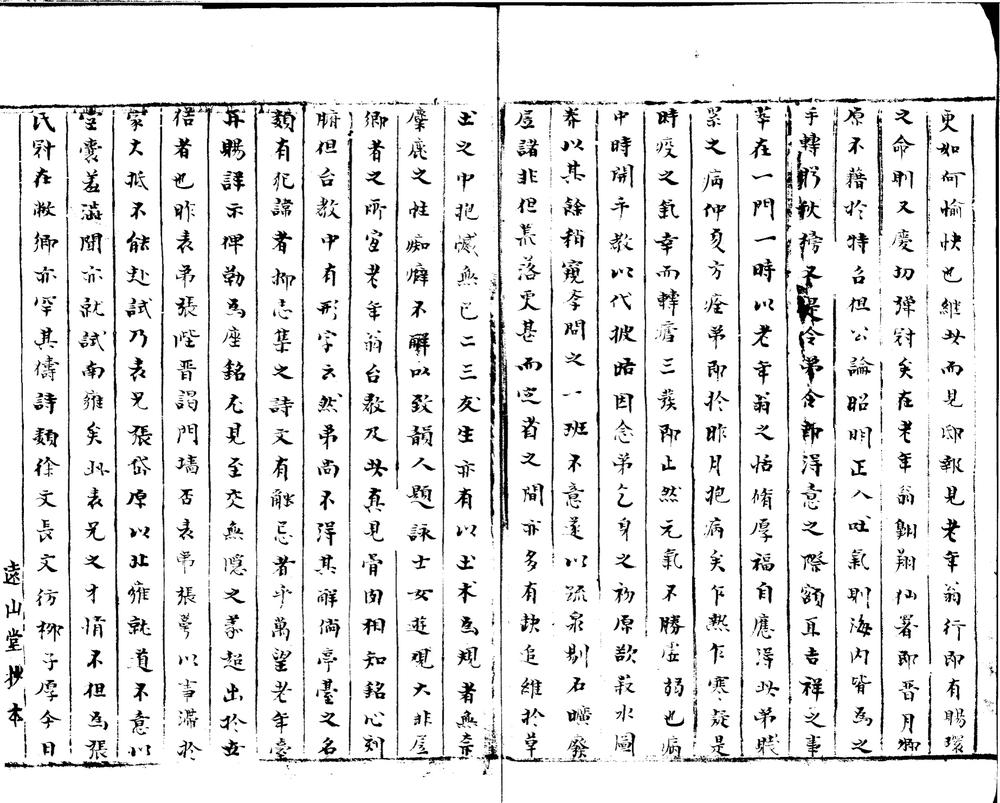 更如何愉快也繼此而見邸報見老年翁行即有賜環
之命則又慶切彈冠矣在老年翁翺翔仙署即晋月卿
原不藉於特召但公論昭明正人吐氣則海内皆為之
手轉躬秋榜又是令弟令郎得意之際額耳吉祥之事
萃在一門一時以老年翁之恬脩厚福自應得此弟賤
累之病仲夏方痊弟即於昨月抱病矣乍熱乍寒疑是
時疫之氣幸而轉瘧三發即止然元氣不勝虛弱也病
中時開手教以代披晤因念弟乞身之初原欲菽水圖
養以其餘稍窺李問之一班不意遂以疏泉剔石曠廢
居諸非但荒落更甚而定省之間亦多有缺追維於草
土之中抱憾無已二三友生亦有以土木為規者無奈
麋鹿之性痴癖不解以致韻人題詠士女遊觀大非居
鄉者之所宜老年翁台教及此真見骨肉相知銘心刻
腑但台教中有形字云然弟尚不得其解倘亭臺之名
類有犯諱者抑志集之詩文有觸忌者乎萬望老年臺
再賜詳示俾勒為座銘尤見至交無隱之義超出於世
俗者也昨表弟張陞晋謁門墻否表弟張萼以事滯於
家大抵不能赴試乃表兄張岱原以北雍就道不意以
堂囊羞澁聞亦就試南雍矣此表兄之才情不但為張
氏冠在敝鄉亦罕其儔詩類徐文長文彷柳子厚今日
遠山堂抄本